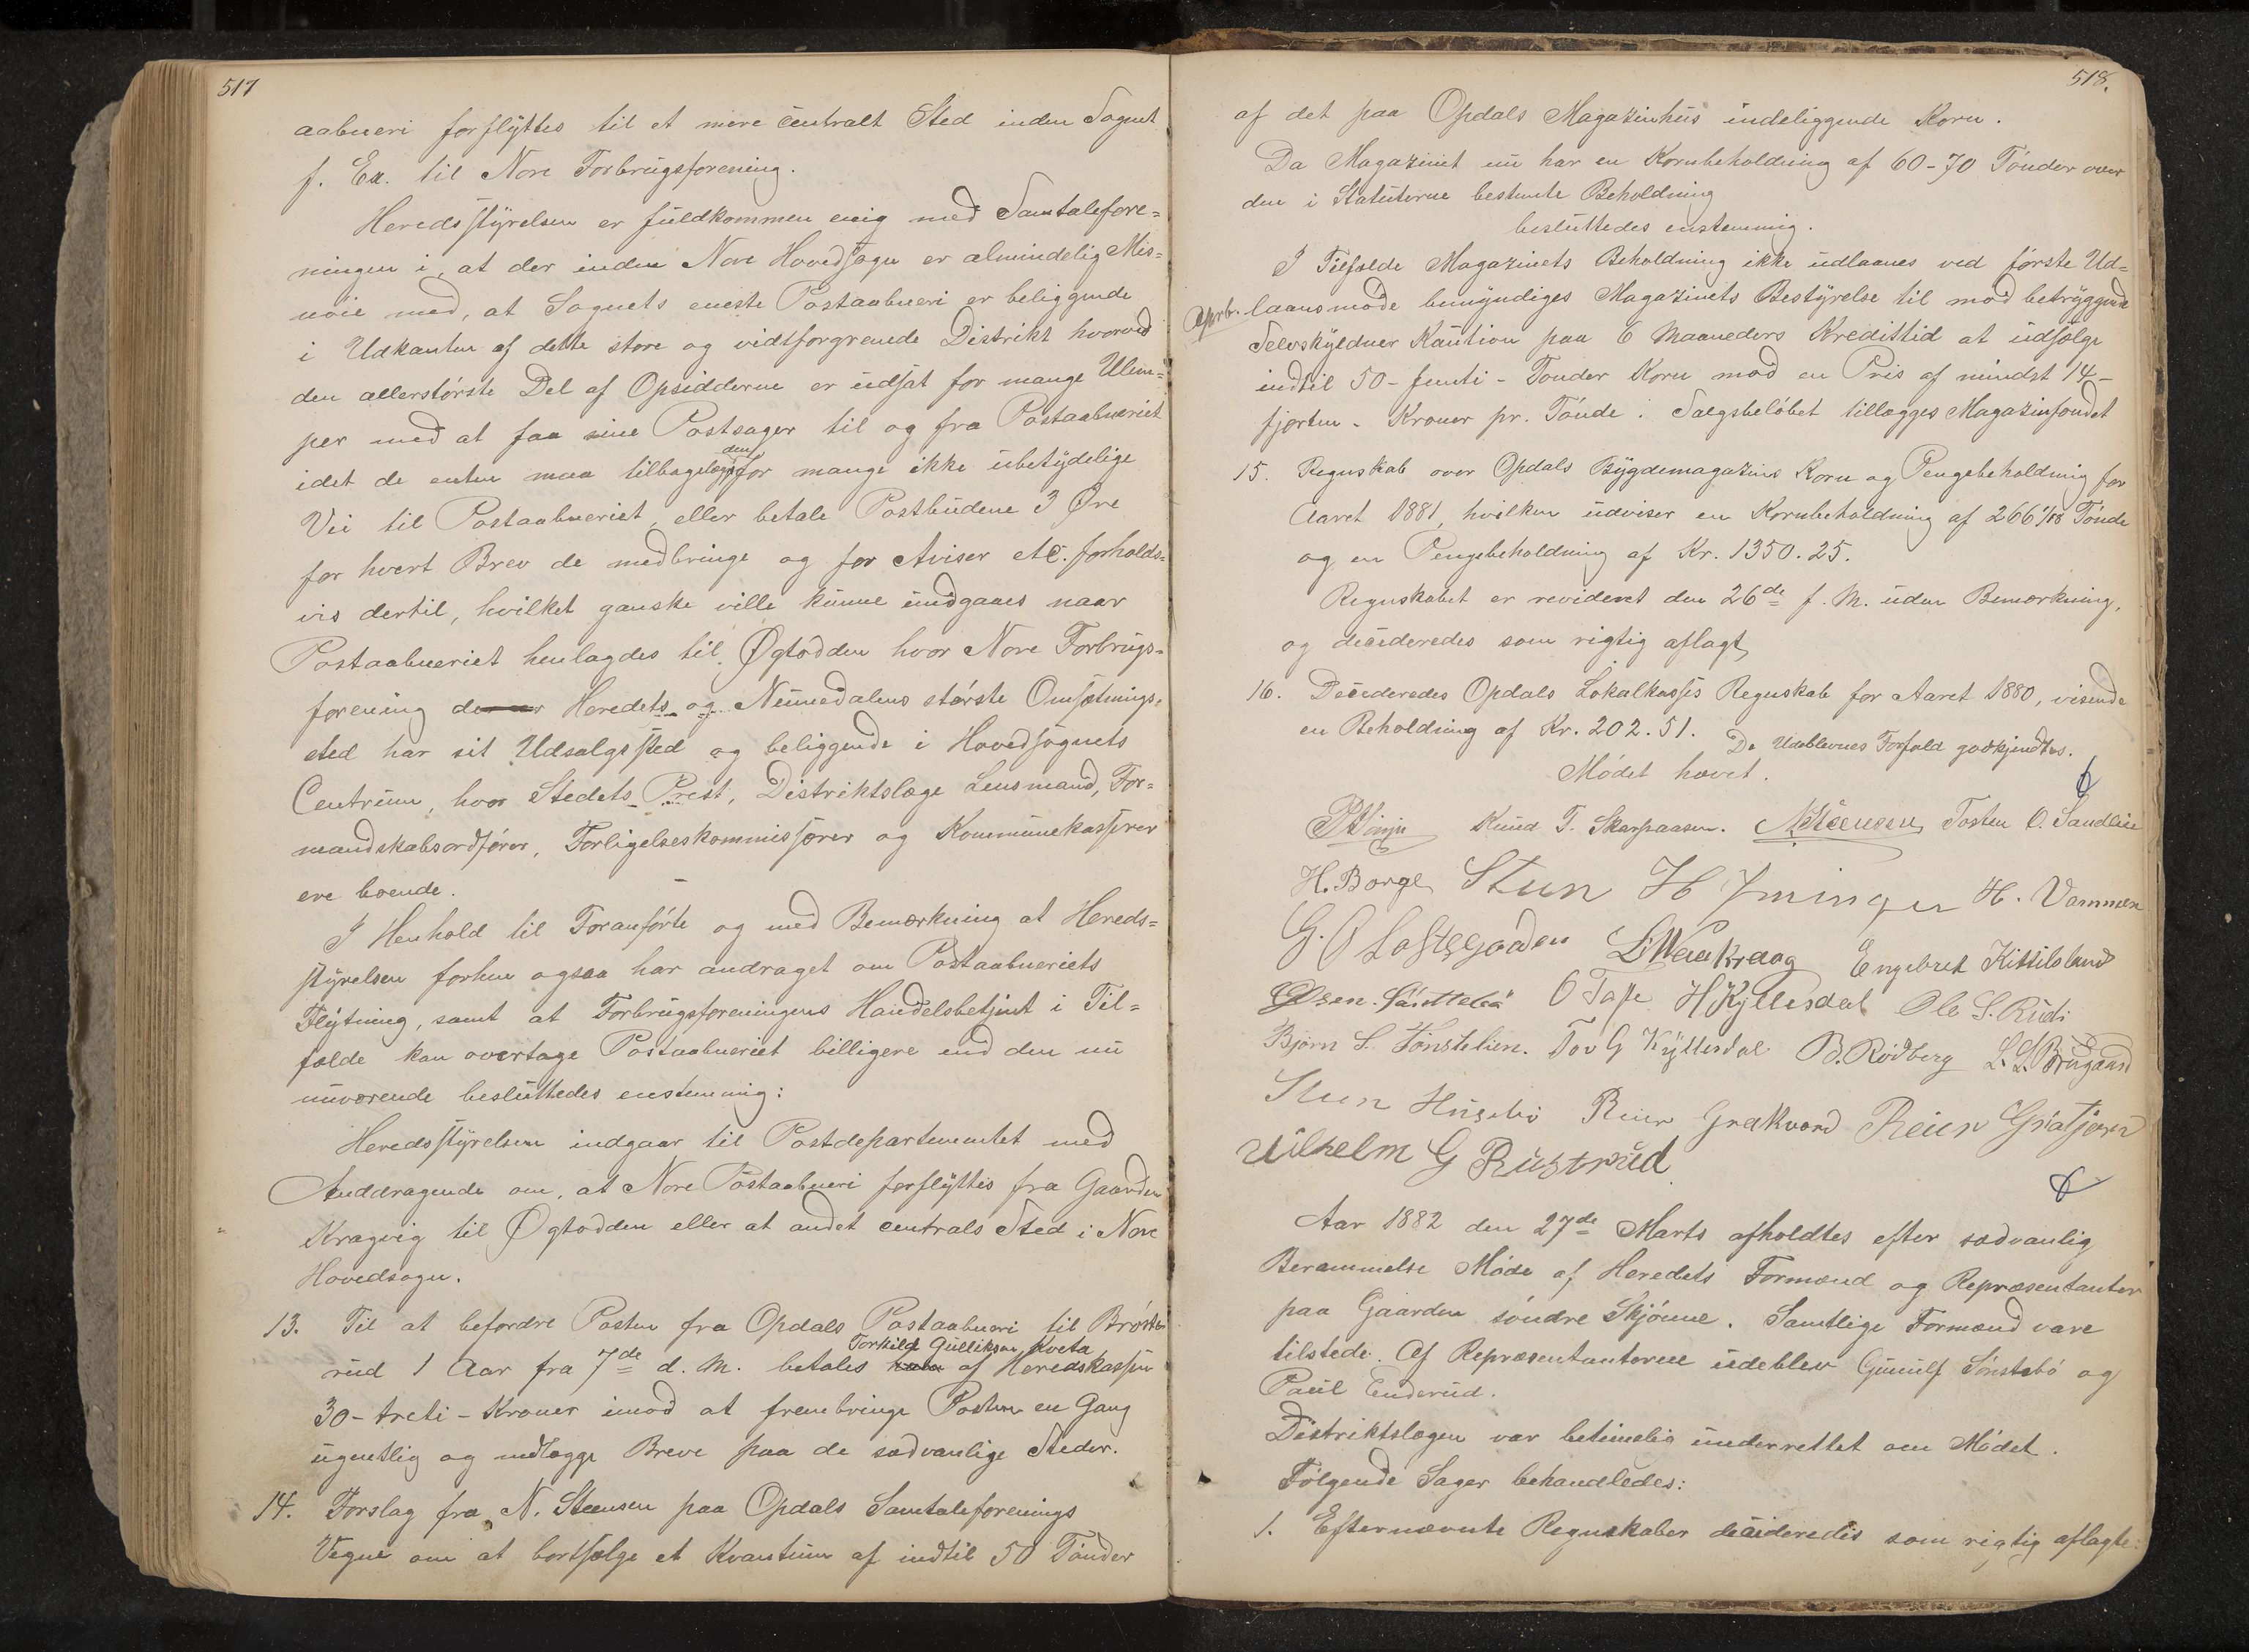 517
aabneri forflyttes til et mere centralt Sted inden Sognet
f. Ex. til Nore Forbrugsforening.
Heredsstyrelsen er fuldkommen enig med Samtalefore=
ningen i, at der inden Nore Hovedsogn er almindelig Mis=
nöie med, at Sognets eneste Postaabneri er beliggende
i Udkanten af dette store og vidtforgrenede Distrikt hvorved
den allerstörste Del af Opsidderne er udsat for mange Ulem=
per med at faa sine Postsager til og fra Postaabneriet
idet de enten maa tilbagelægge den for mange ikke ubetydelige
Vei til Postaabneriet, eller betale Postbudene 3 Øre
for hvert Brev de medbringe og for Aviser etc. forholds=
vis dertil, hvilket ganske ville kunne undgaaes naar
Postaabneriet henlagdes til Øgtodden hvor Nore Forbrugs=
forening Heredets og Numedalens störste Omsætnings=
sted har sit Udsalgssted og beliggende i Hovedsognets
Centrum, hvor Stedets Prest, Distriktslæge Lensmand, For=
mandskabsordförer, Forligelseskommissærer og Kommunekasserer
ere boende.
I Henhold til Foranförte og med Bemærkning at Hereds=
styrelsen forhen ogsaa har andraget om Postaabneriets
Flytning, samt at Forbrugsforeningens Handelsbetjent i Til=
fælde kan overtage Postaabneriet billigere end den nu
nuværende besluttedes enstemmig:
Heredsstyrelsen indgaar til Postdepartementet med
Anddragende om, at Nore Postaabneri forflyttes fra Gaarden
Kragvig til Øgtodden eller at andet centrals Sted i Nore
Hovedsogn.
13. Til at befordre Posten fra Opdals Postaabneri til Bröste
rud 1 Aar fra 7de d. M. betales Torkild Gulliksen Kveta af Heredskassen
30 - treti - Kroner imod at frembringe Posten en Gang
ugentlig og nedlægge Breve paa de sædvanlige Steder.
14. Forslag fra N. Steensen paa Opdals Samtaleforenings
Vegne om at bortsælge et Kvantum af indtil 50 Tönder
518.
af det paa Opdals Magazinhus indeliggende Korn.
Da Magazinet nu har en Kornbeholdning af 60-70 Tönder over
den i Statuterne bestemte Beholdning
besluttedes enstemmig.
I Tilfælde Magazinets Beholdning ikke udlaanes ved förste Ud=
Aprb. laansmöde bemyndiges Magazinets Bestyrelse til mod betryggende
Selvskyldner Kaution paa 6 Maaneders Kredittid at udsælge
indtil 50 - femti - Tonder Korn mod en Pris af mindst 14 -
fjorten - Kroner pr. Tönde. Salgsbelöbet tillægges Magazinfondet
15. Regnskab over Opdals Bygdemagazins Korn og Pengebeholdning for
Aaret 1881, hvilken udviser en Kornbeholdning af 266 Tönde
og en Pengebeholdning af Kr. 1350.25.
Regnskabet er revideret den 26de f. M. uden Bemærkning,
og decideredes som rigtig aflagt
16. Decideredes Opdals Lokalkasses Regnskab for Aaret 1880, visende
en Beholdning af Kr. 202.51. De Udeblevnes Forfald godkjendtes.
Mödet hævet.
Knud T. Skarpaasen. NSteensen Tosten O. Sandlie
H. Borge Steen H Jminger H. Vammen
G. O Loftsgaarden Engebret Kittilsland
O Tasse H Kyllesdal Ole S. Rudi
Björn L. Tönstelien. Tov G Kyllesdal B. Rødberg L. L. Brugaard
Steen Husebö Reier Reier
Wilhelm G Rustrud
Aar 1882 den 27de Marts afholdtes efter sædvanlig
Berammelse Möde af Heredets Formænd og Repræsentanter
paa Gaarden söndre Skjönne. Samtlige Formænd vare
tilstede. Af Repræsentanterne udeblev Gunulf Sönstebö og
Paul Enderud.
Distriktslægen var betimelig underrettet om Mödet.
Fölgende Sager behandledes:
1. Efternævnte Regnskaber decideredes som rigtig aflagte: